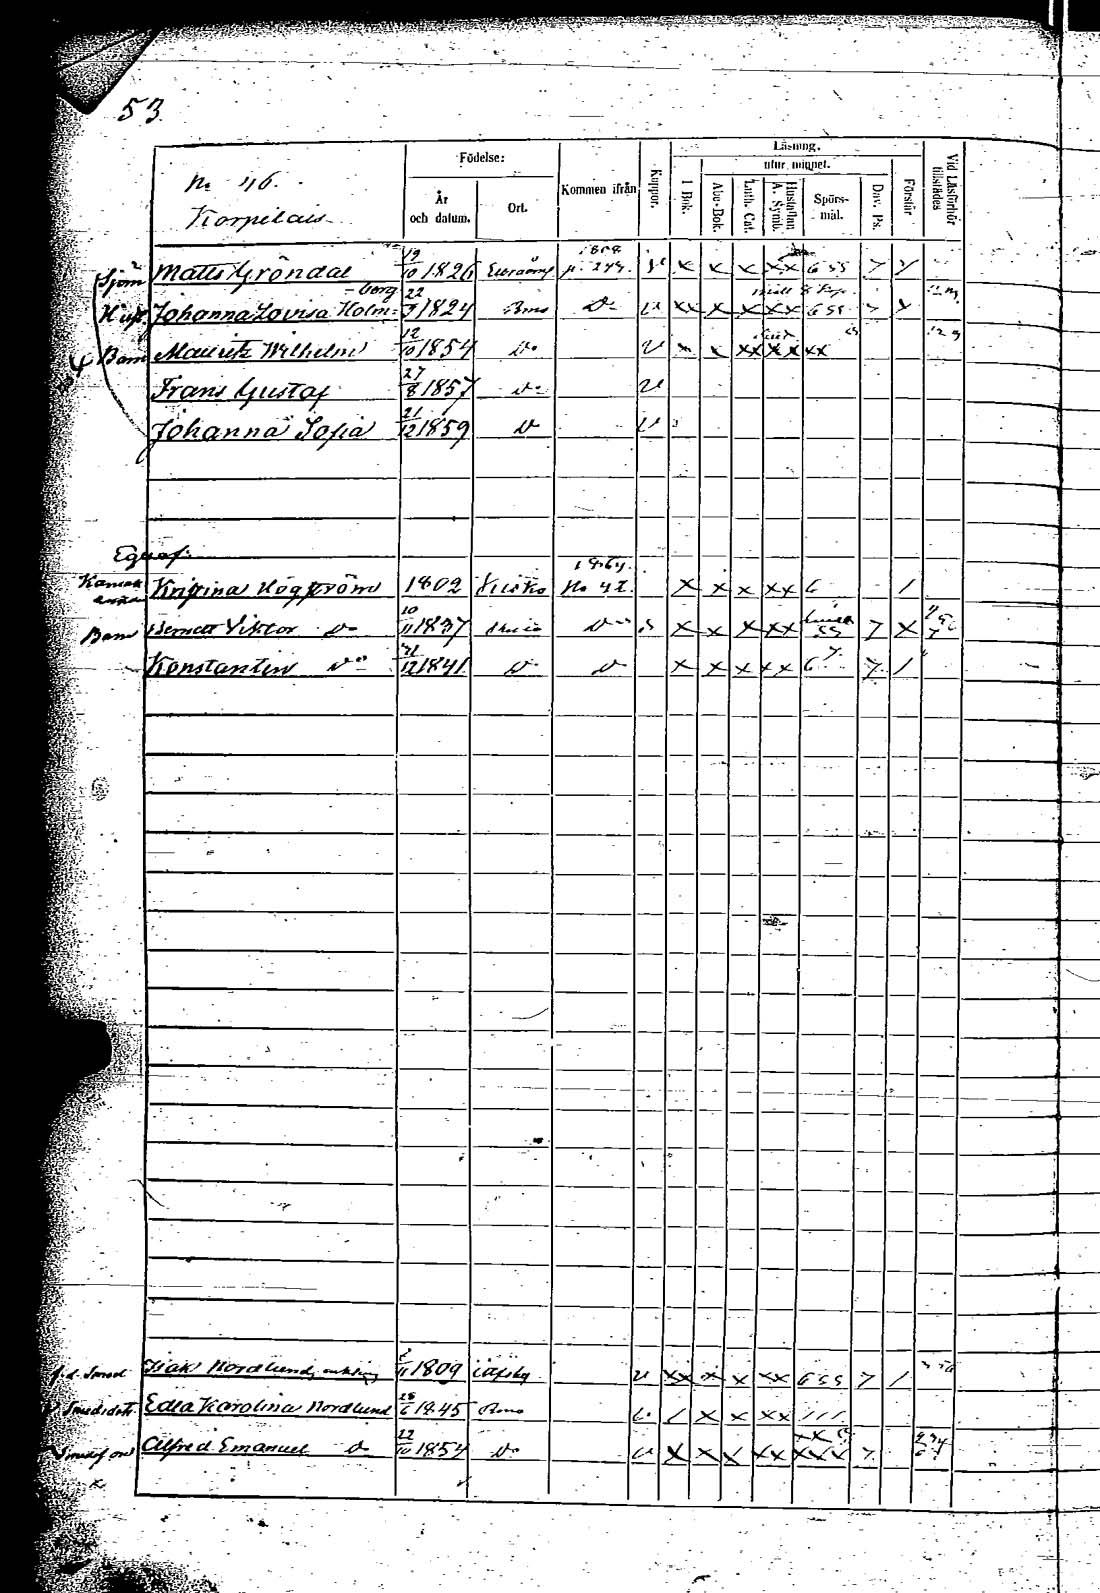 53
No 46.
Korpilais
Födelse:
År och datum.
Ort.
Kommen ifrån
Koppor.
Läsning.
I Bok.
utur minnet.
Abc-Bok.
Luth. Cat.
Hustaflan A. Symb.
Spörs-mål.
Dav. Ps.
Förstår
Vid Läsförhör tillstädes
Sjöm Matts Gröndal 19/10 1826 p. 244. v x x x xx 6 55 7
Hust. Johanna Lovisa Holm= =berg 22/9 1824 do v xx x x xx 655 7 x
Barn Mauritz Wilhelm 12/10 1854 do v x x xx xx xx
Frans Gustaf 27/8 1857 do v
Johanna Sofia 21/12 1859 do v
1864.
Kristina Högström 1802 Kisko No 42. x x x xx 6 /
Barn Bernett Viktor do 10/11 1837 do x x x xx 55 7 x
Konstantin do 21/12 1841 do do x x x xx 6 7 /
f.d. Smed Isak Nordlund, enkling 2/11 1809 v xx x x xx 655 7 /
Edla Karolina Nordlund 28/6 1845 / x x xx ///
Alfred Emanuel do 22/10 1854 do v x x x xx xxx 7